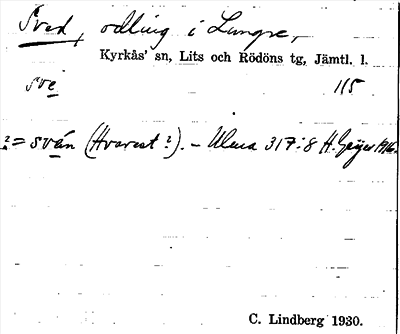 Sved, odling i Lungre,
Kyrkås' sn, Lits och Rödöns tg, Jämtl. l.
sve 115
?= sván (Hvarest?). – Ulma 317:8 H. Geijer 1916.
C. Lindberg 1930.